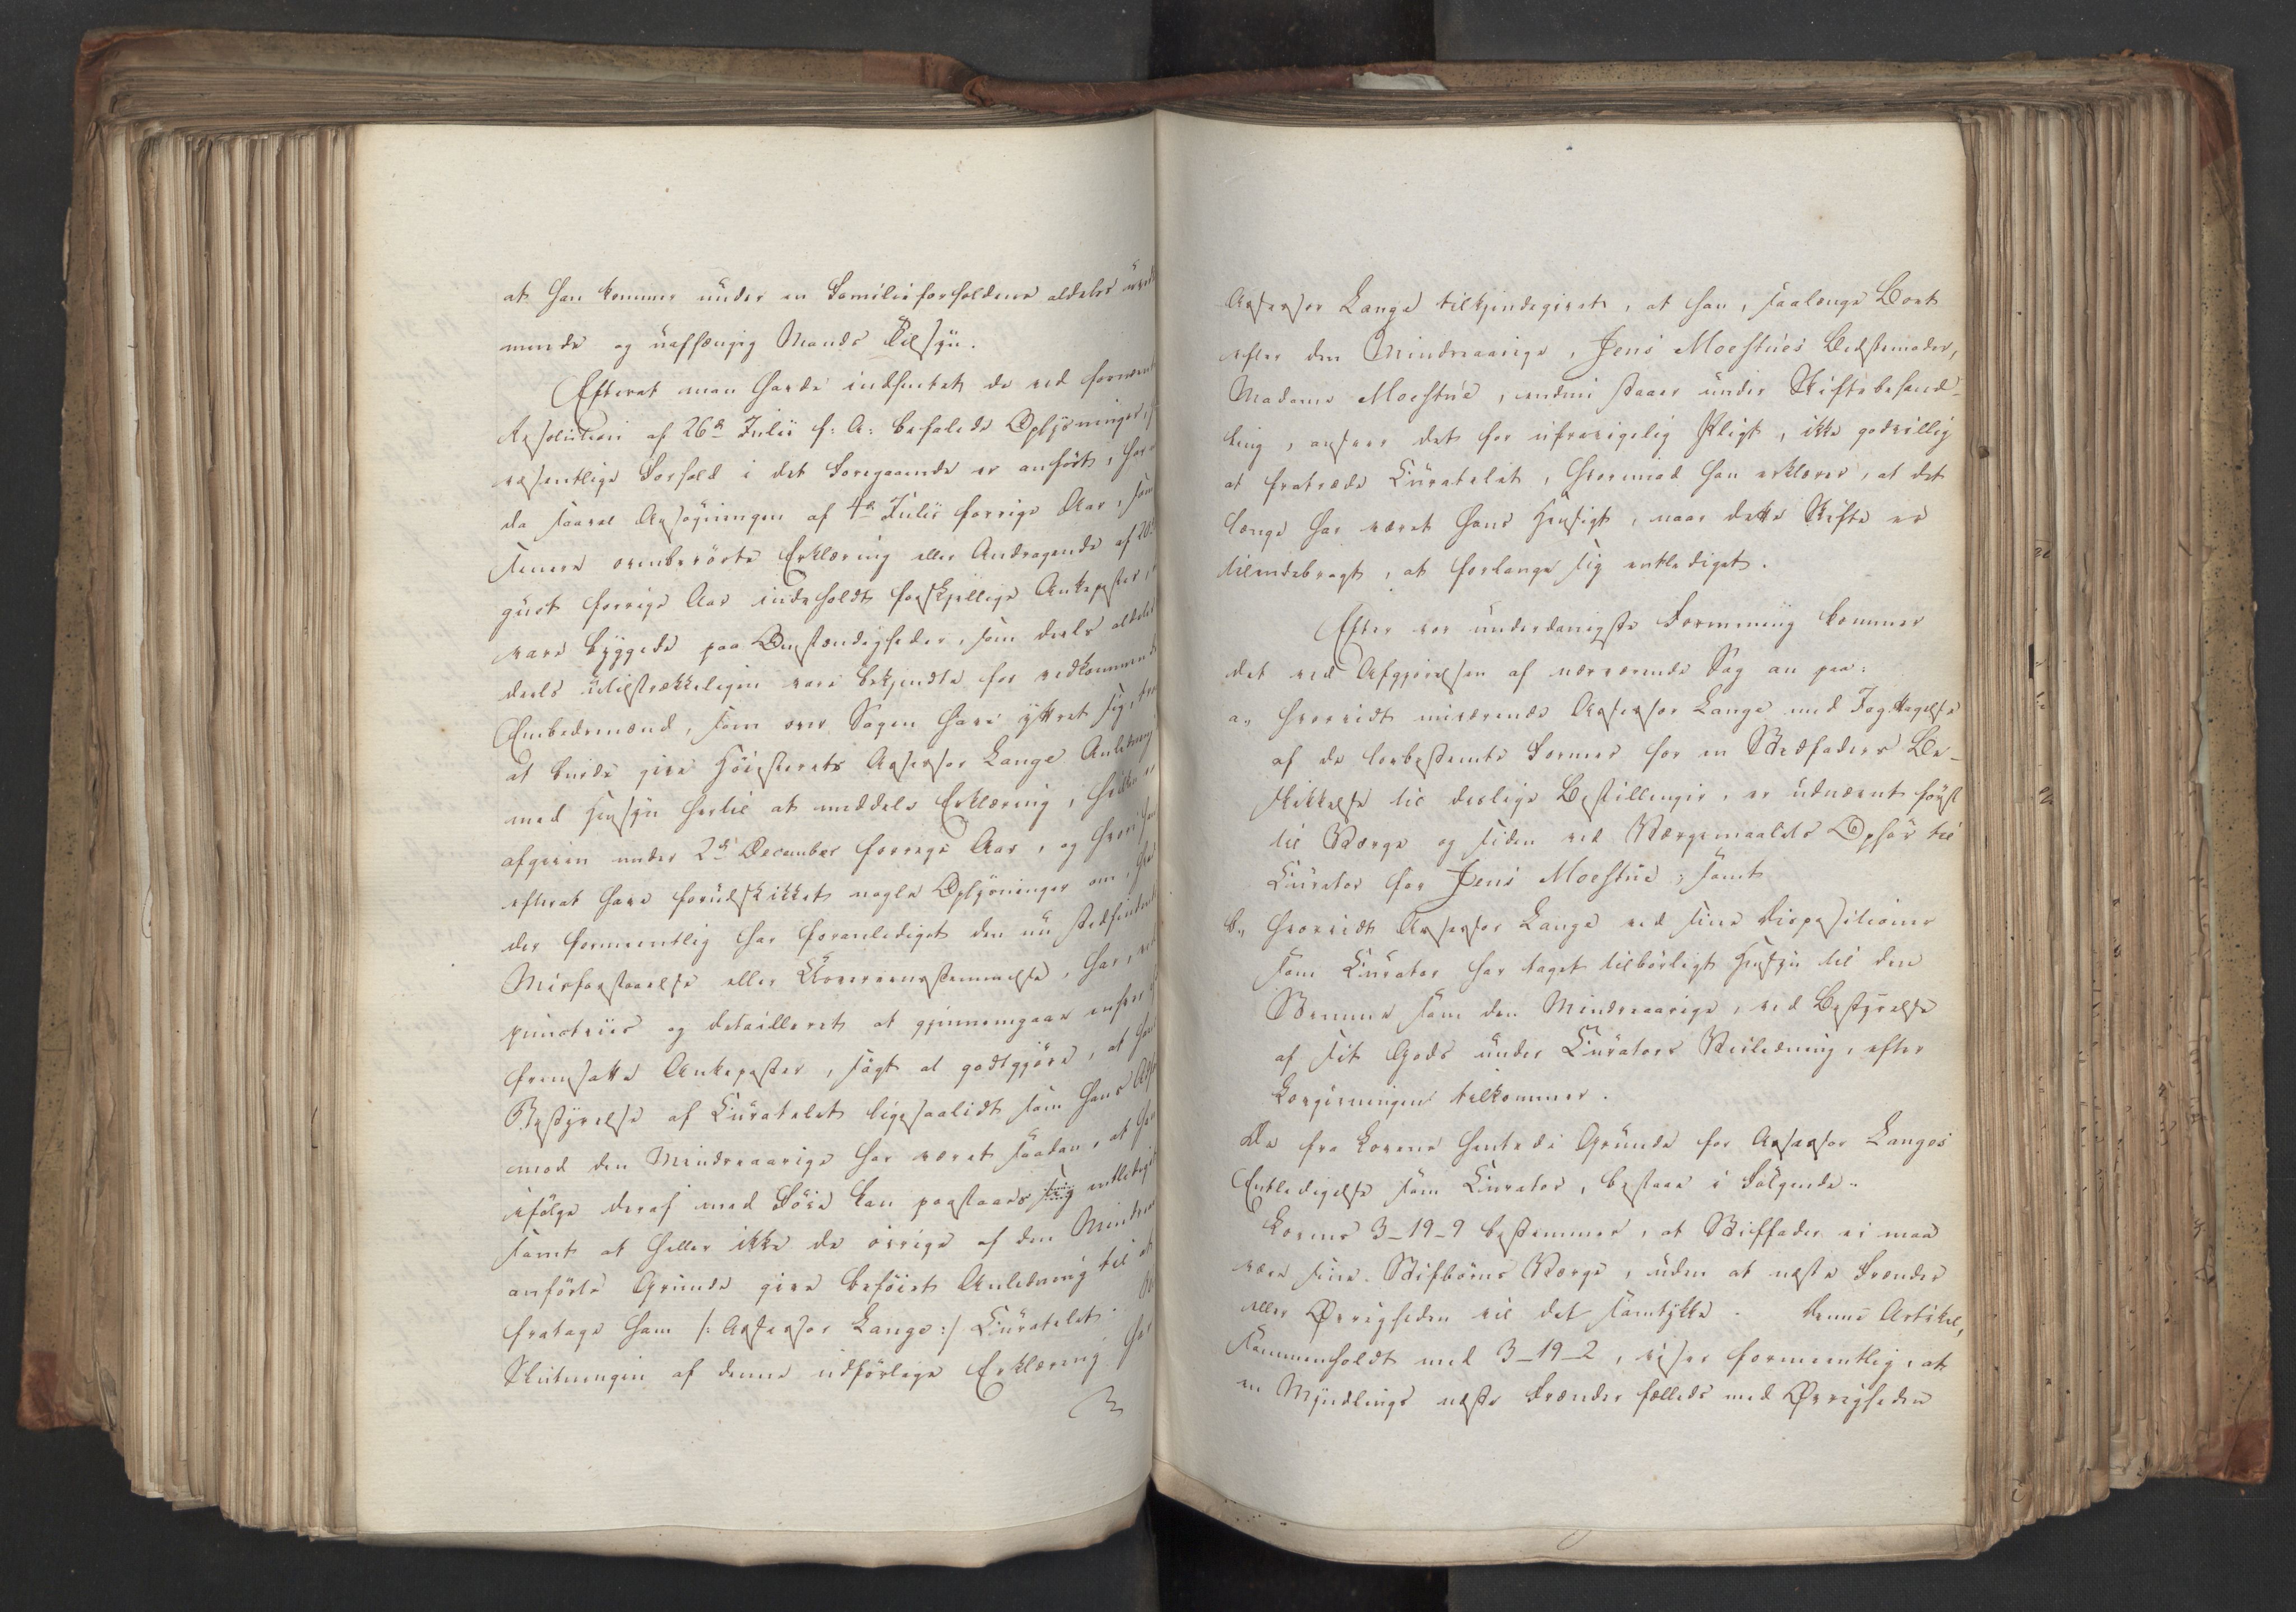 at han kommer under en Familieforholdene aldeles uved
mende og uafhængig Mands Tilsyn.
Efterat man havde indhentet de ved fornævnt
Resolution af 26de Julii f: A: befalede Oplysninger,
væsentlige Forhold i det Foregaaende er anført, har
da saavel Ansøgningen af 4de Julii forrige Aar, som
senere ovenberørte Erklæring eller Andragende af 20de
gust forrige Aar indeholdt forskjellige Ankeposter,
vare byggede paa Omstændigheder, som deels aldeles
deels utilstrækkeligen vare bekjendte for vedkommende
Embedsmænd, som over Sagen have yttret sig,
at burde give Høiesterets Assessor Lange Anledning
med Hensyn hertil at meddele Erklæring, hvilken
afgiven under 2den December forrige Aar, og hvori han
efterat have forudskikket nogle Oplysninger om, hvad
der formeentlig har foranlediget den nu stedfindende
Misforstaaelse eller Uovereensstemmelse, har, ved
punctviis og detailleret at gjennemgaae enhver af
fremsatte Ankeposter, søgt at godtgjøre, at hans
Bestyrelse af Curatelet ligesaalidt som hans Adfærd
mod den Mindreaarige har været saadan, at han
ifølge deraf med Føie kan paastaaes sig entlediget
samt at heller ikke de øvrige af den Mindreaa
anførte Grunde give beføiet Anledning til at
fratage ham /: Assessor Lange :/ Curatelet.
Slutningen af denne udførlige Erklæring har
Assessor Lange tilkjendegivet, at han, saalænge Boet
efter den Mindreaarige, Jens Moestues Bedstemoder,
Madame Moestue, endnu staaer under Skiftebehand-
ling, anseer det for ufravigelig Pligt, ikke godvillig
at fratræde Curatelet, hvorimod han erklærer, at det
længe har været hans Hensigt, naar dette Skifte er
tilendebragt, at forlange sig entlediget.
Efter vor underdanigste Formening kommer
det ved Afgjørelsen af nærværende Sag an paa:
a,, hvorvidt nuværende Assessor Lange med Iagttagelse
af de lovbestemte Former for en Stedfaders Be-
skikkelse til deslige Bestillinger, er udnævnt først
til Værge og siden ved Værgemaalets Ophør til
Curator for Jens Moestue; samt
b,, hvorvidt Assessor Lange ved sine Dispositioner
som Curator har taget tilbørligt Hensyn til den
Stemme som den Mindreaarige, ved Bestyrelse
af sit Gods under Curators Veiledning, efter
Lovgivningen tilkommer.
De fra Lovene hentede Grunde for Assessor Langes
Entledigelse som Curator, bestaae i Følgende.
Lovens 3-19-9 bestemmer, at Stiffader ei maa
være sine Stifbørns Værge, uden at næste Frænder
eller Øvrigheden vil det samtykke. Denne Artikel,
sammenholdt med 3-19-2, viser formeentlig, at
en Myndlings næste Frænder fælleds med Øvrigheden